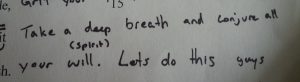 Take a deep breath and conjure all
(spirit)
your will. Lets do this guys